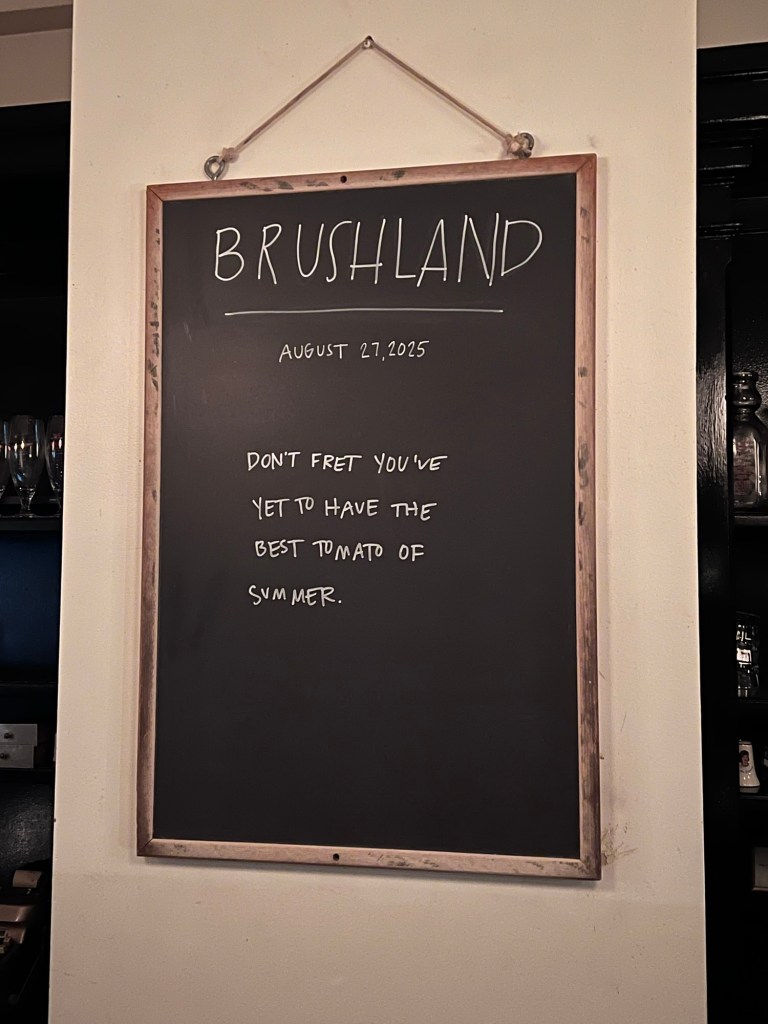 BRUSHLAND
AUGUST 27, 2025
DON'T FRET YOU'VE
YET TO HAVE THE
BEST TOMATO OF
SUMMER.